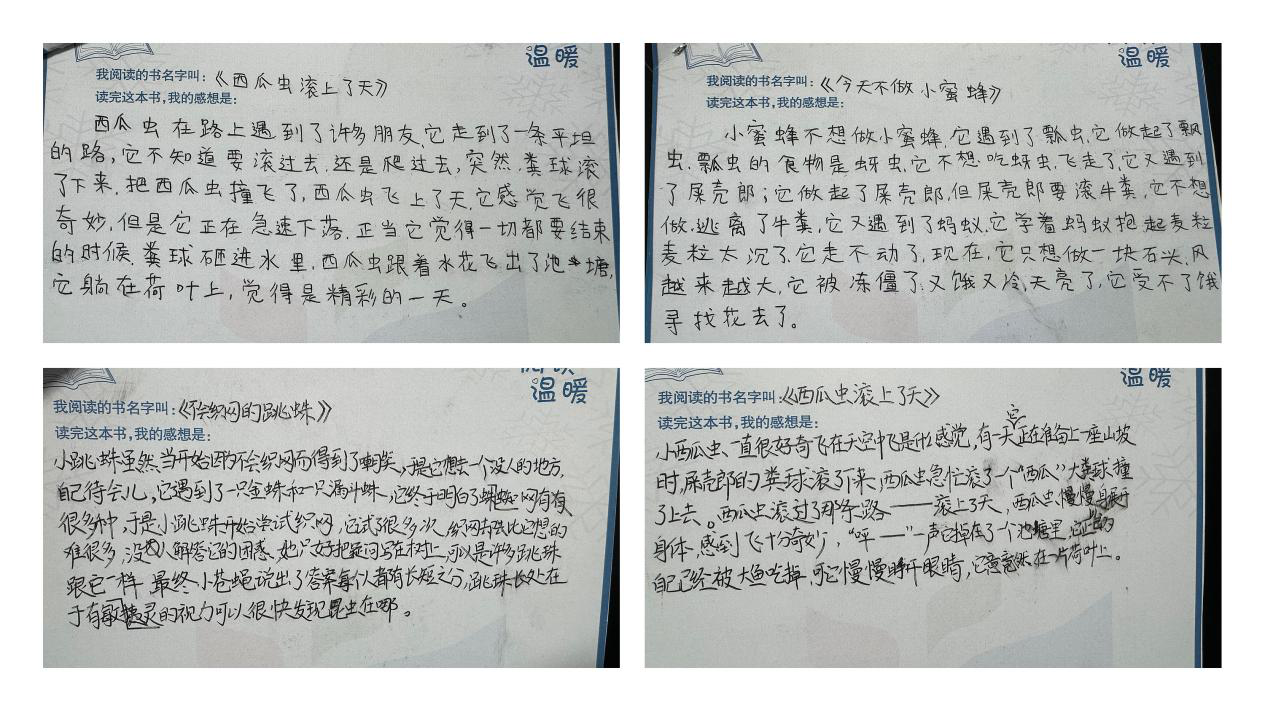 温暖
我阅读的书名字叫:《西瓜虫滚上了天》
读完这本书,我的感想是:
西瓜虫在路上遇到了许多朋友,它走到了一条平坦
的路,它不知道要滚过去,还是爬过去,突然,粪球滚
了下来,把西瓜虫撞飞了,西瓜虫飞上了天,它感觉飞很
奇妙,但是它正在急速下落,正当它觉得一切都要结束
的时候,粪球砸进水里,西瓜虫跟着水花飞出了池塘,
它躺在荷叶上,觉得是精彩的一天。
温暖
我阅读的书名字叫:《今天不做小蜜蜂》
读完这本书,我的感想是:
小蜜蜂不想做小蜜蜂,它遇到了瓢虫,它做起了瓢
虫,瓢虫的食物是蚜虫,它不想吃蚜虫,飞走了,它又遇到
了屎壳郎;它做起了屎壳郎,但屎壳郎要滚牛粪,它不想
做,逃离了牛粪,它又遇到了蚂蚁,它学着蚂蚁抱起麦粒
麦粒太沉了,它走不动了,现在,它只想做一块石头,风
越来越大,它被冻僵了,又饿又冷,天亮了,它受不了饿
寻找花去了。
温暖
我阅读的书名字叫:《不会织网的跳蛛》
读完这本书,我的感想是:
小跳蛛虽然当开始因为不会织网而得到了嘲笑,于是它想去一个没人的地方,
自己待会儿,它遇到了一只金蛛和一只漏斗蛛,它终于明白了蜘蛛网有
很多种,于是小跳蛛开始尝试织网,它试了很多次,织网却比它想的
难很多,没人解答它的困惑,它只好把疑问写在树上,可以是许多跳蛛
跟它一样,最终小苍蝇说出了答案每个人都有长短之分,跳蛛长处在
于有敏捷灵的视力可以很快发现昆虫在哪。
温暖
我阅读的书名字叫:《西瓜虫滚上了天》
读完这本书,我的感想是:
小西瓜虫、一直很好奇飞在天空中飞是什感觉,有一天它正在准备上一座山坡
时,屎壳郎的粪球滚了下来,西瓜虫急忙滚了一个"西瓜"大粪球撞
了上去。西瓜虫滚过了那条路——滚上了天,西瓜虫慢慢展开
身体,感到飞十分奇妙,"呯——"一声它掉在了一个池塘里,它
自己已经被大鱼吃掉,可它慢慢睁开眼睛,它竟然在一片荷叶上。